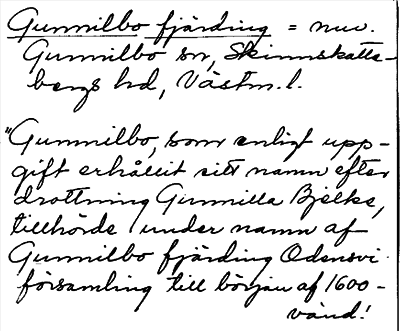 Gunnilbo fjärding = nuv.
Gunnilbo sn, Skinnskatte-
bergs hd, Västm. l.
"Gunnilbo, som enligt upp-
gift erhållit sitt namn efter
drottning Gunnilla Bjelke,
tillhörde under namn af
Gunnilbo fjärding Odensvi
församling till början af 1600-
vänd!